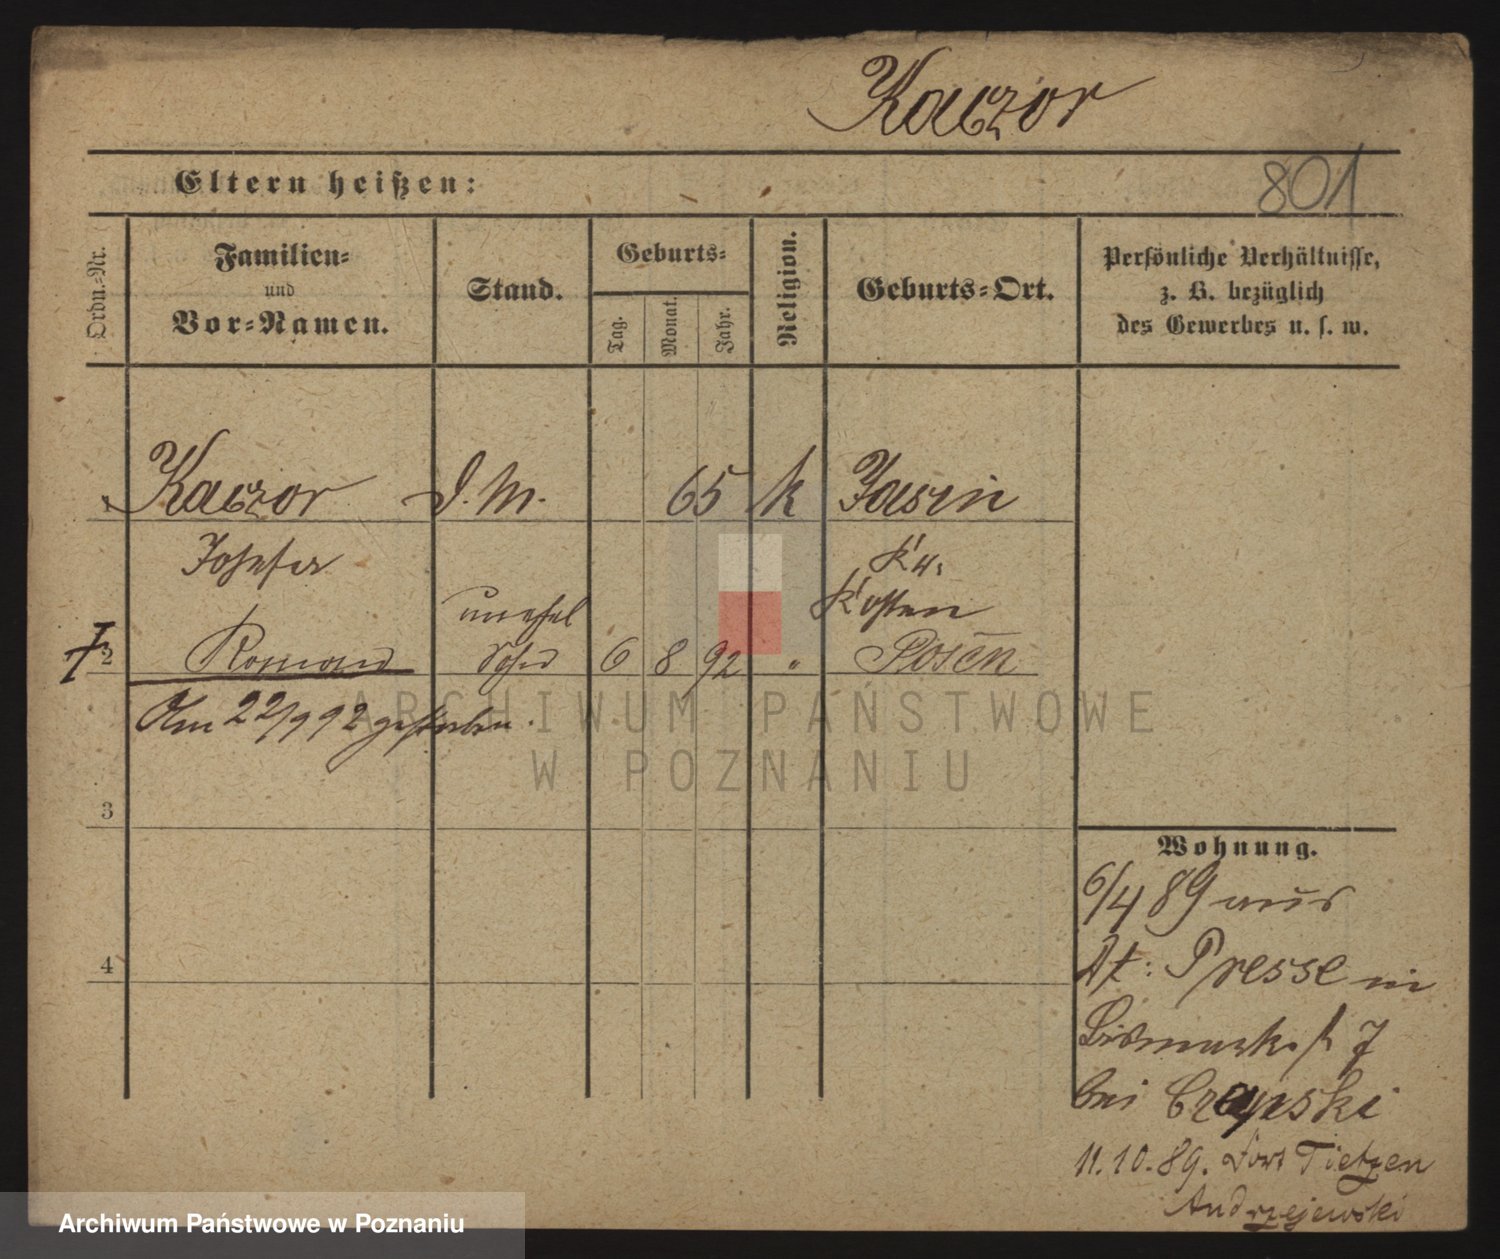 Kaczor
801
Eltern heißen:
Ordn.-Nr.
Familien-
und
Vor-Namen.
Stand.
Geburts-
Tag.
Monat.
Jahr.
Religion.
Geburts-Ort.
Persönliche Verhältnisse,
z. B. bezüglich
des Gewerbes u. s. w.
Kaczor D. M. 65 k
Josefa Kr.
Kosten
unehel
2 Roman Sohn 6 8 92 " Posen
Am 22/9 92 gestorben.
3
4
Wohnung.
6/4 89 aus
At: Presse in
Bismarkst 7
bei
11.10.89. Fort Tietzen
Andrzejewski
ARCHIWUM PAŃSTWOWE
W POZNANIU
Archiwum Państwowe w Poznaniu